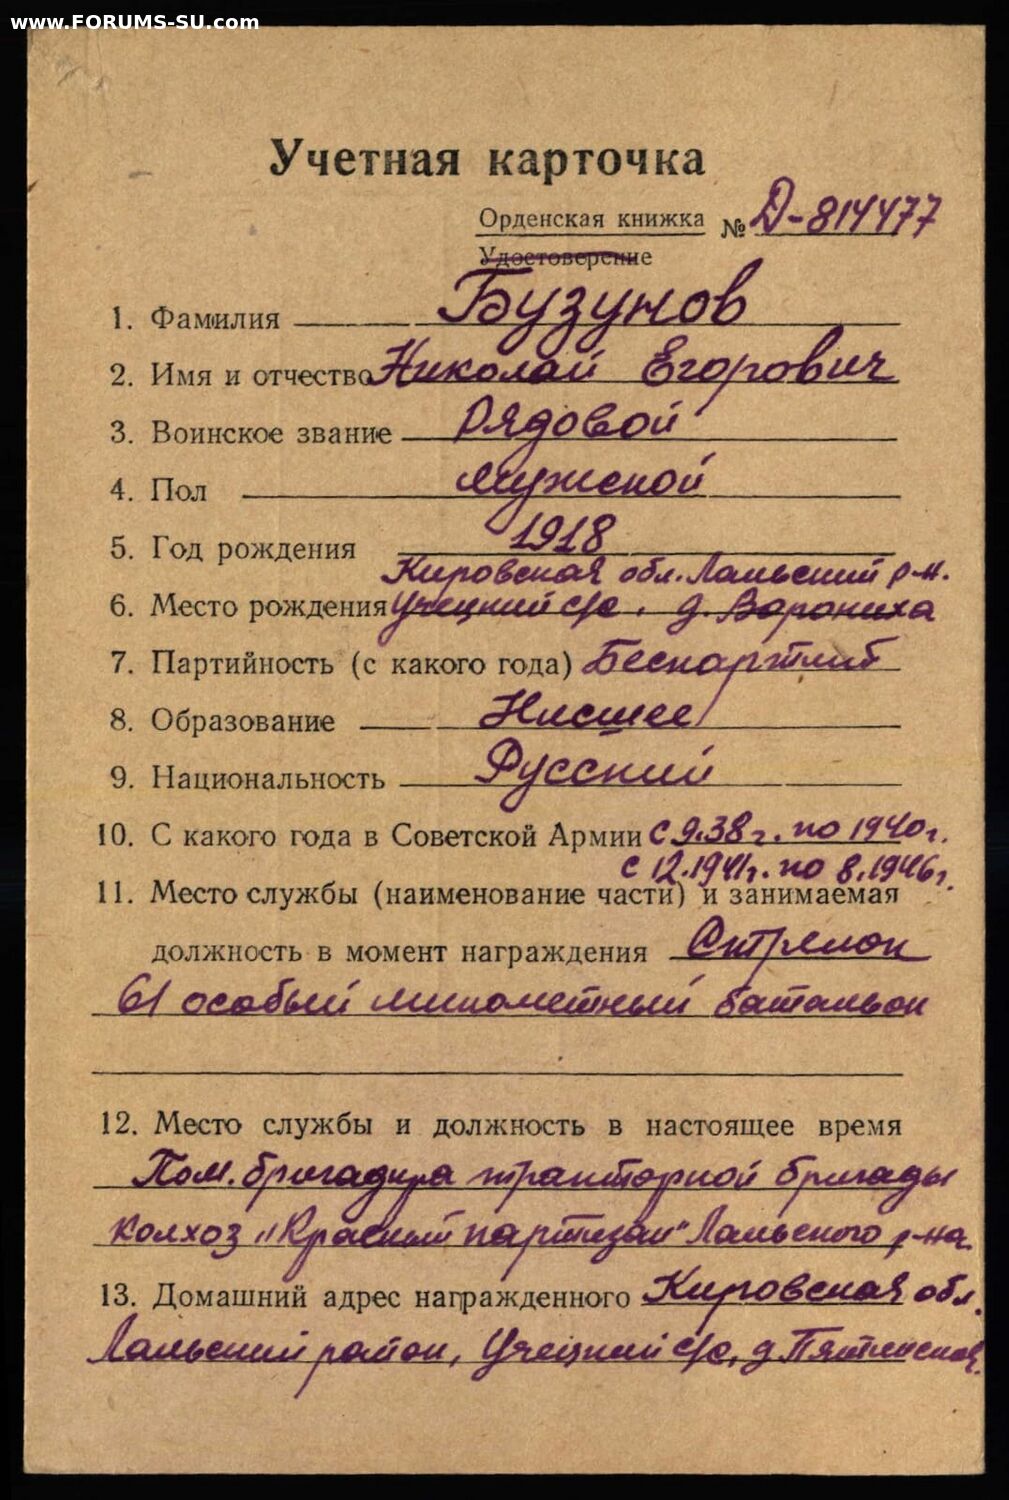 www.FORUMS-SU.com
Учетная карточка
Орденская книжка № Д-814477
Удостоверение
1. Фамилия Бузунов
2. Имя и отчество Николай Егорович
3. Воинское звание Рядовой
4. Пол мужской
5. Год рождения 1918
Кировская обл. Лальский р-н.
6. Место рождения Учецкий с/с, д.Ворониха
7. Партийность (с какого года) Беспартийн
8. Образование Низшее
9. Национальность Русский
10. С какого года в Советской Армии С 9.38 г. по 1940 г.
с 12.1941 г. по 8.1946 г.
11. Место службы (наименование части) и занимаемая
должность в момент награждения Стрелок
61 особый минометный батальон
12. Место службы и должность в настоящее время
Пом. бригадира тракторной бригады
колхоз "Красный партизан" Лальского р-на
13. Домашний адрес награжденного Кировская обл.
Лальский район, Учецкий с/с, д.